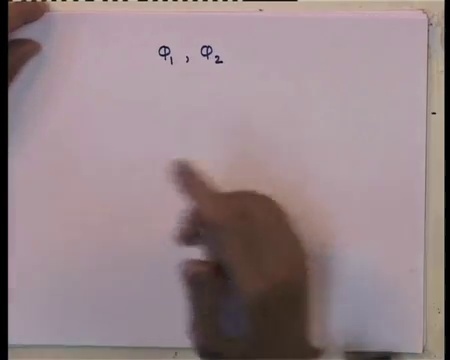 φ₁ , φ₂